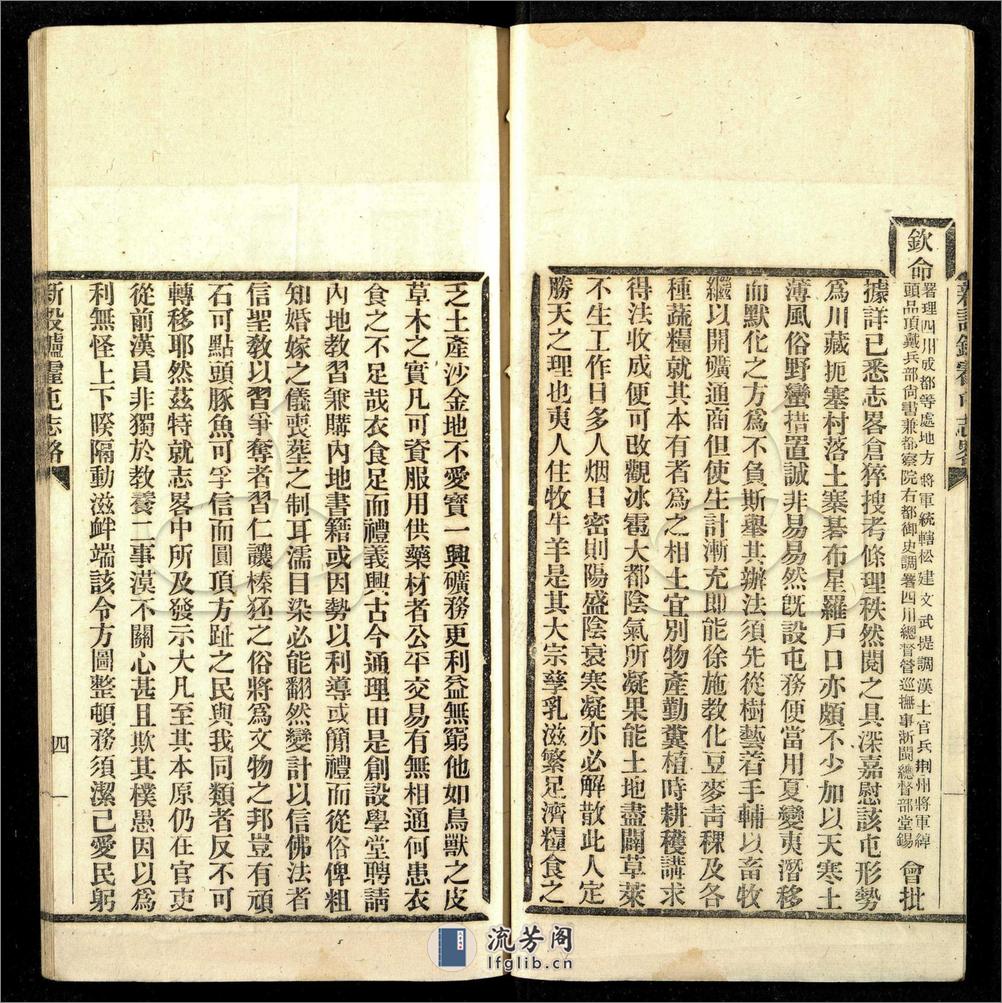 欽命
署理四川成都等處地方將軍統轄松建文武提調漢土官兵荆州將軍綽
頭品頂戴兵部尚書兼都察院右都御史調署四川總督管巡撫事浙閩總督部堂錫
會批
據詳已悉志畧倉猝搜考條理秩然閱之具深嘉慰該屯形勢
爲川藏扼塞村落土寨碁布星羅戶口亦頗不少加以天寒土
薄風俗野蠻措置誠非易易然旣設屯務便當用夏變夷潛移
而默化之方爲不負斯舉其辦法須先從樹藝着手輔以畜牧
繼以開礦通商但使生計漸充即能徐施教化豆麥靑稞及各
種蔬糧就其本有者爲之相土宜別物產勤糞植時耕穫講求
得法收成便可改觀冰雹大都陰氣所凝果能土地盡闢草萊
不生工作日多人烟日密則陽盛陰衰寒凝亦必解散此人定
勝天之理也夷人住牧牛羊是其大宗孳乳滋繁足濟糧食之
乏土產沙金地不愛寶一興礦務更利益無窮他如鳥獸之皮
草木之實凡可資服用供藥材者公平交易有無相通何患衣
食之不足哉衣食足而禮義興古今通理田是創設學堂聘請
內地教習兼購內地書籍或因勢以利導或簡禮而從俗俾粗
知婚嫁之儀喪葬之制耳濡目染必能翻然變計以信佛法者
信聖教以習爭奪者習仁讓榛狉之俗將爲文物之邦豈有頑
石可點頭豚魚可孚信而圓頂方趾之民與我同類者反不可
轉移耶然茲特就志畧中所及發示大凡至其本原仍在官吏
從前漢員非獨於教養二事漠不關心甚且欺其樸愚因以爲
利無怪上下暌隔動滋衅端該令方圖整頓務須潔己愛民躬
新設鑪霍屯志略
四
流芳阁
lfglib.cn